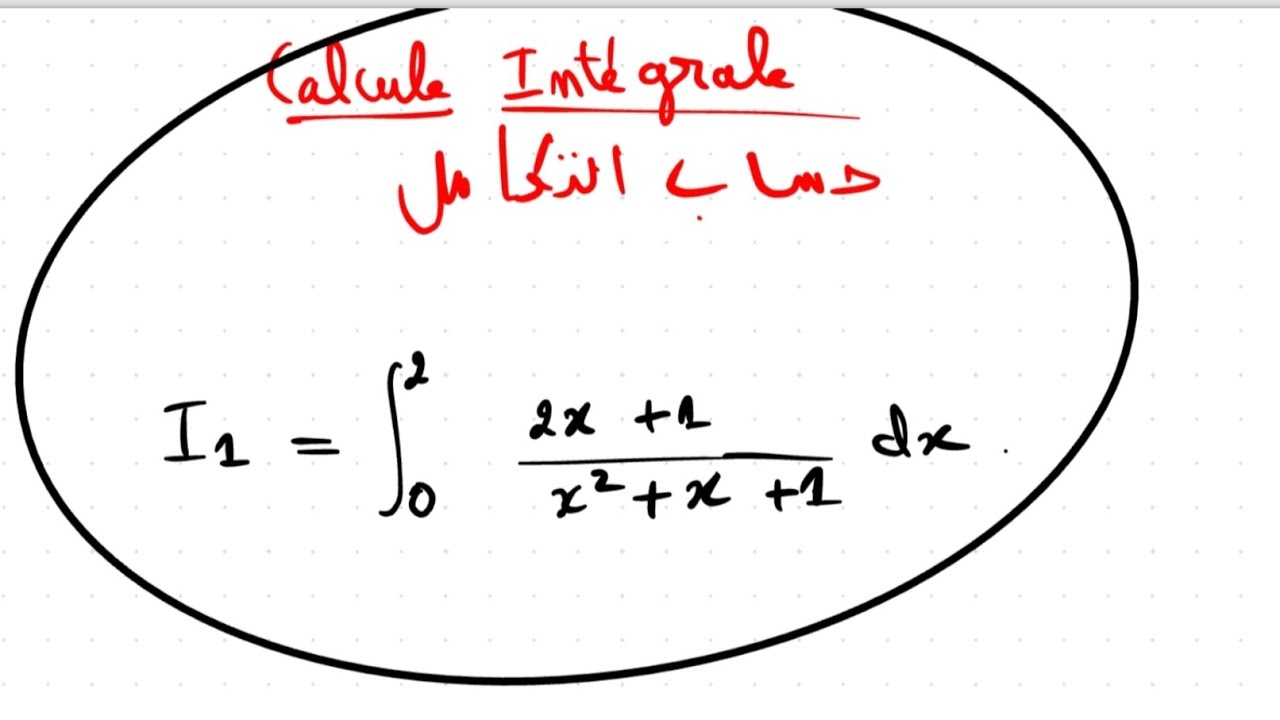 Calcule Intégrale
حساب التكامل
I₁ = ∫₀² (2x + 1)/(x² + x + 1) dx .